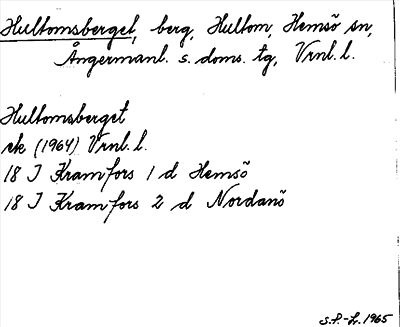 Hultomsberget, berg, Hultom, Hemsö sn,
Ångermanl. s. doms. tg, Vrnl. l.
Hultomsberget
ek (1964) Vrnl. l.
18 J Kramfors 1 d Hemsö
18 J Kramfors 2 d Nordanö
S.P.-Lr. 1965